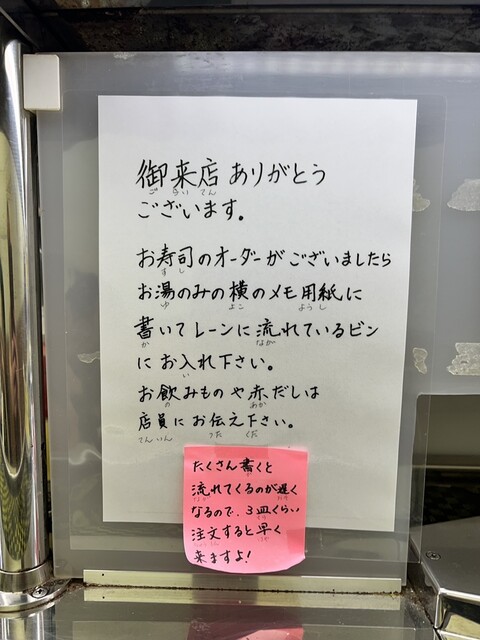 御来店ありがとう
ごらいてん
ございます。
お寿司のオーダーがございましたら
すし
お湯のみの横のメモ用紙に
ゆ よこ ようし
書いてレーンに流れているビン
か なが
にお入れ下さい。
い
お飲みものや赤だしは
の あか
店員にお伝え下さい。
てんいん つた くだ
たくさん書くと
流れてくるのが遅く
なるので、3皿くらい
注文すると早く
来ますよ!